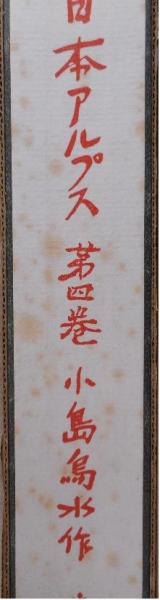 日本アルプス 第四巻 小島烏水作